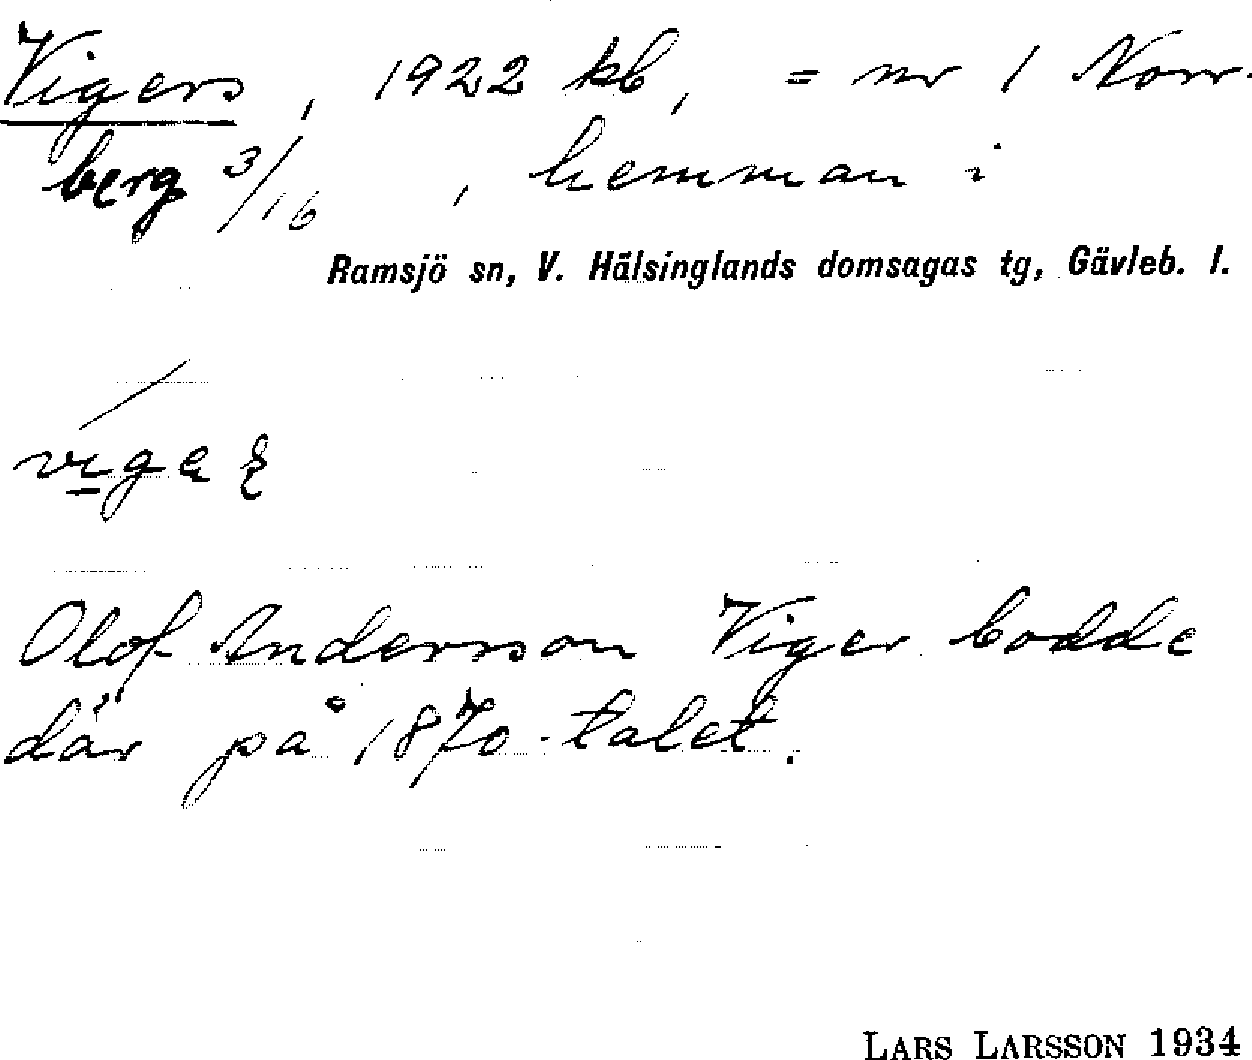 Vigers, 1922 kb, = nr 1 Norr-
berg 3/16, hemman i
Ramsjö sn, V. Hälsinglands domsagas tg, Gävleb. l.
Olof Andersson Viger bodde
där på 1870-talet.
LARS LARSSON 1934